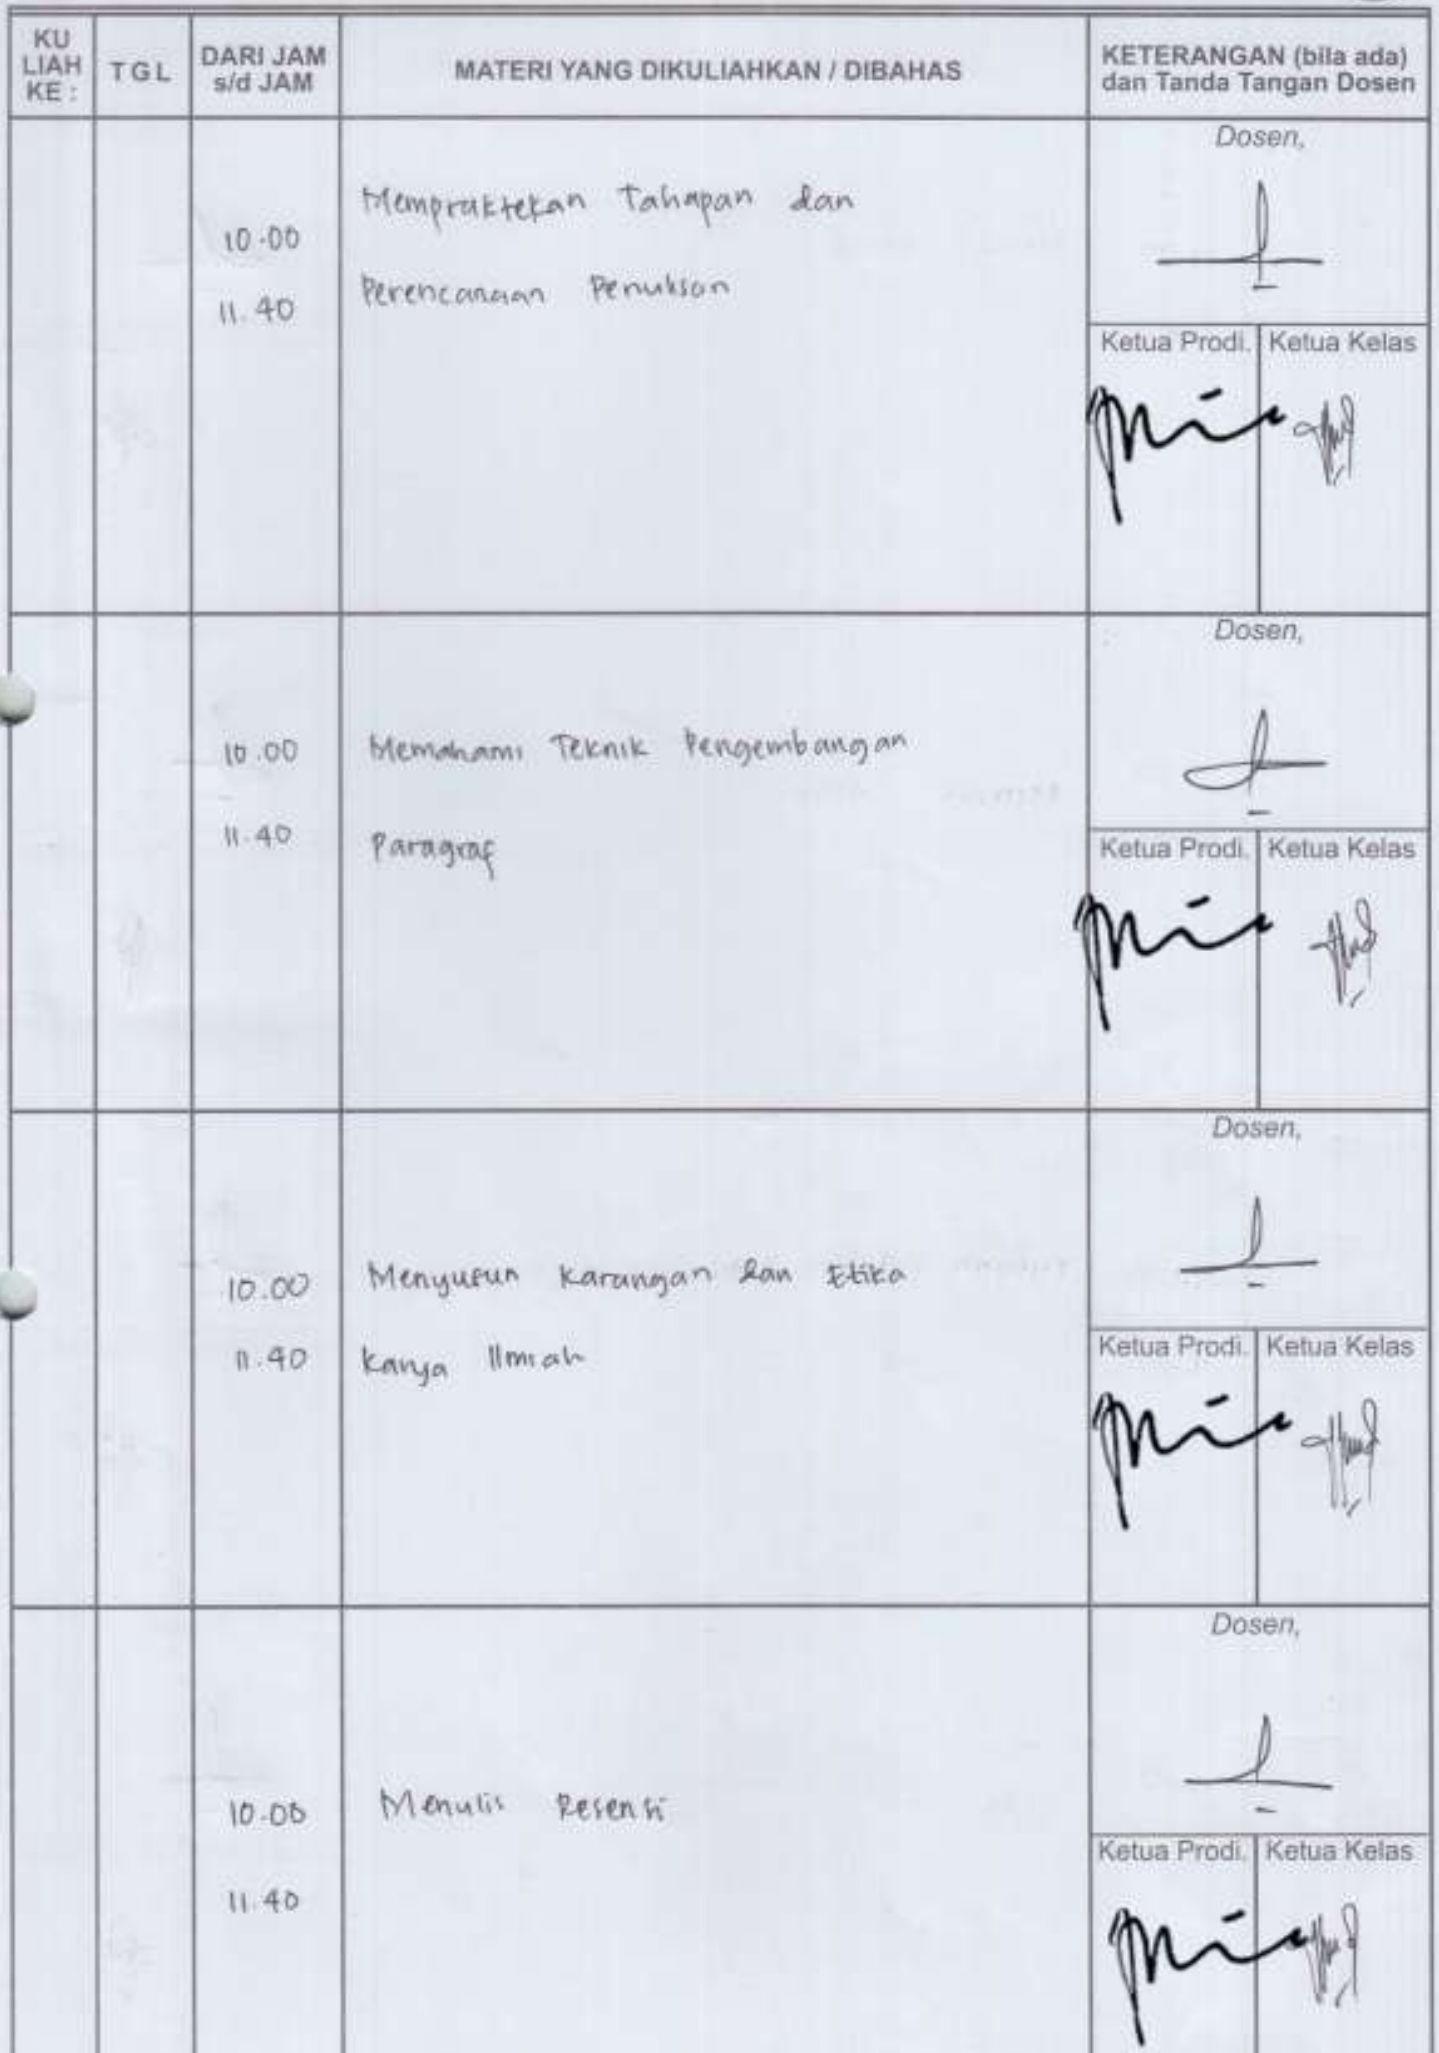 KU LIAH KE :
TGL
DARI JAM s/d JAM
MATERI YANG DIKULIAHKAN / DIBAHAS
KETERANGAN (bila ada) dan Tanda Tangan Dosen
Dosen,
Mempraktekan Tahapan dan
10.00
Perencanaan Penulisan
11.40
Ketua Prodi.
Ketua Kelas
Dosen,
10.00
Memahami Teknik Pengembangan
11.40
Paragraf
Ketua Prodi.
Ketua Kelas
Dosen,
10.00
Menyusun Karangan dan Etika
11.40
Karya Ilmiah
Ketua Prodi.
Ketua Kelas
Dosen,
10.00
Menulis Resensi
11.40
Ketua Prodi.
Ketua Kelas